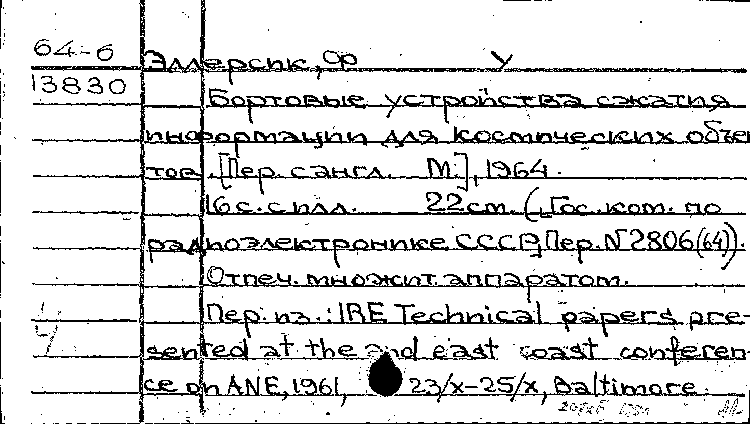 64-6 Эллерсик, Ф У
13830
Бортовые устройства сжатия
информации для космических объек
тов. [Пер. с англ. М.], 1964.
16 с. с илл. 22 см. ([Гос. ком. по
радиоэлектронике СССР]. Пер. N 2806(64)).
Отпеч. множит. аппаратом.
Пер. из.: IRE Technical papers pre-
sented at the east coast conferen-
ce on ANE, 1961, 23/x-25/x, Baltimore.